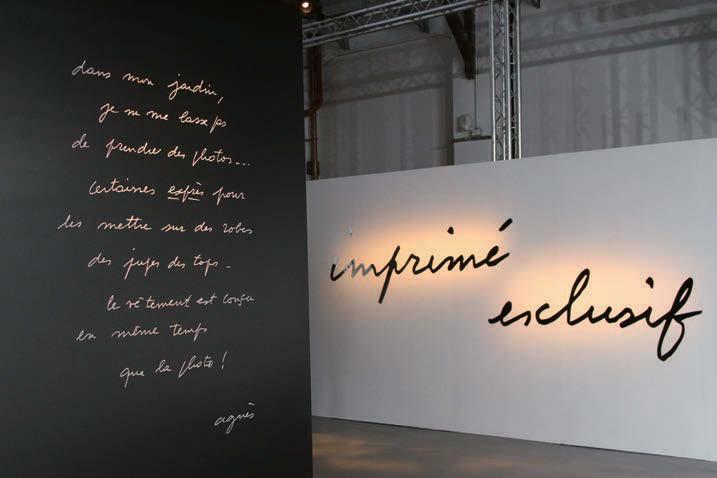 dans mon jardin,
je ne me lasse ps
de prendre des photos...
certaines exprès pour
les mettre sur des robes
des jupes des tops_
le vêtement est conçu
en même temps
que la photo !
agnès
imprimé
exclusif